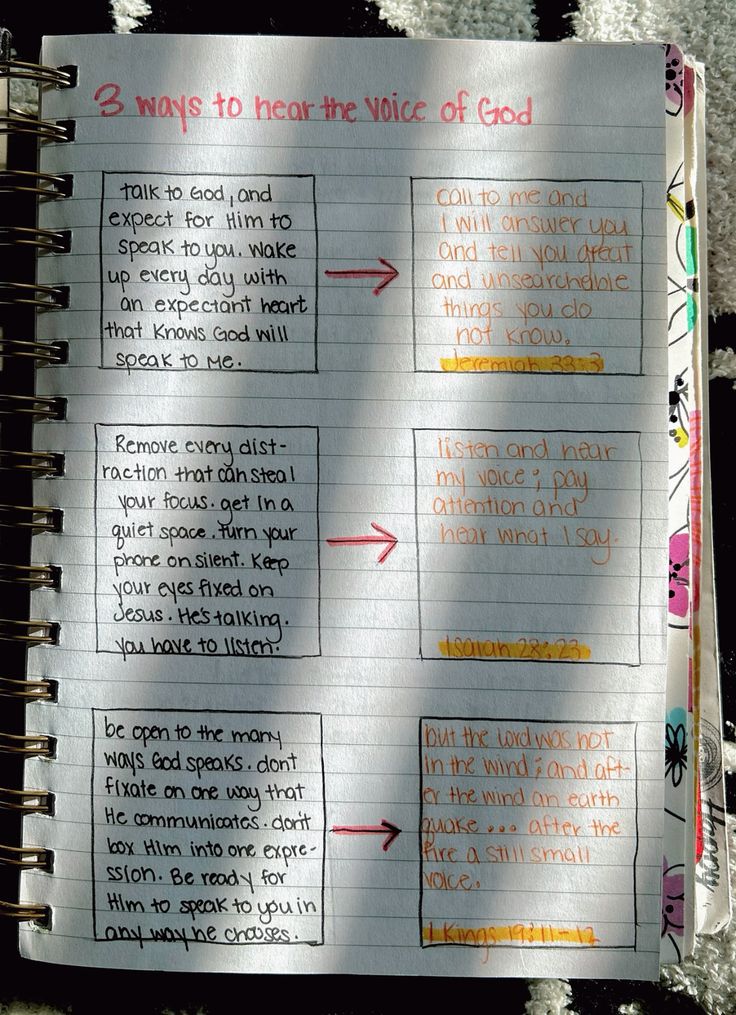 3 ways to hear the voice of God
talk to God, and
expect for Him to
speak to you. Wake
up every day with
an expectant heart
that knows God will
speak to me.
call to me and
I will answer you
and tell you great
and unsearchable
things you do
not know.
Jeremiah 33:3
Remove every dist-
raction that can steal
your focus. get in a
quiet space. turn your
phone on silent. Keep
your eyes fixed on
Jesus. He's talking.
you have to listen.
listen and hear
my voice; pay
attention and
hear what I say.
Isaiah 28:23
be open to the many
ways God speaks. dont
fixate on one way that
He communicates. don't
box Him into one expre-
ssion. Be ready for
Him to speak to you in
any way he chooses.
but the lord was not
in the wind; and aft-
er the wind an earth
quake... after the
fire a still small
voice.
1 Kings 19:11-12